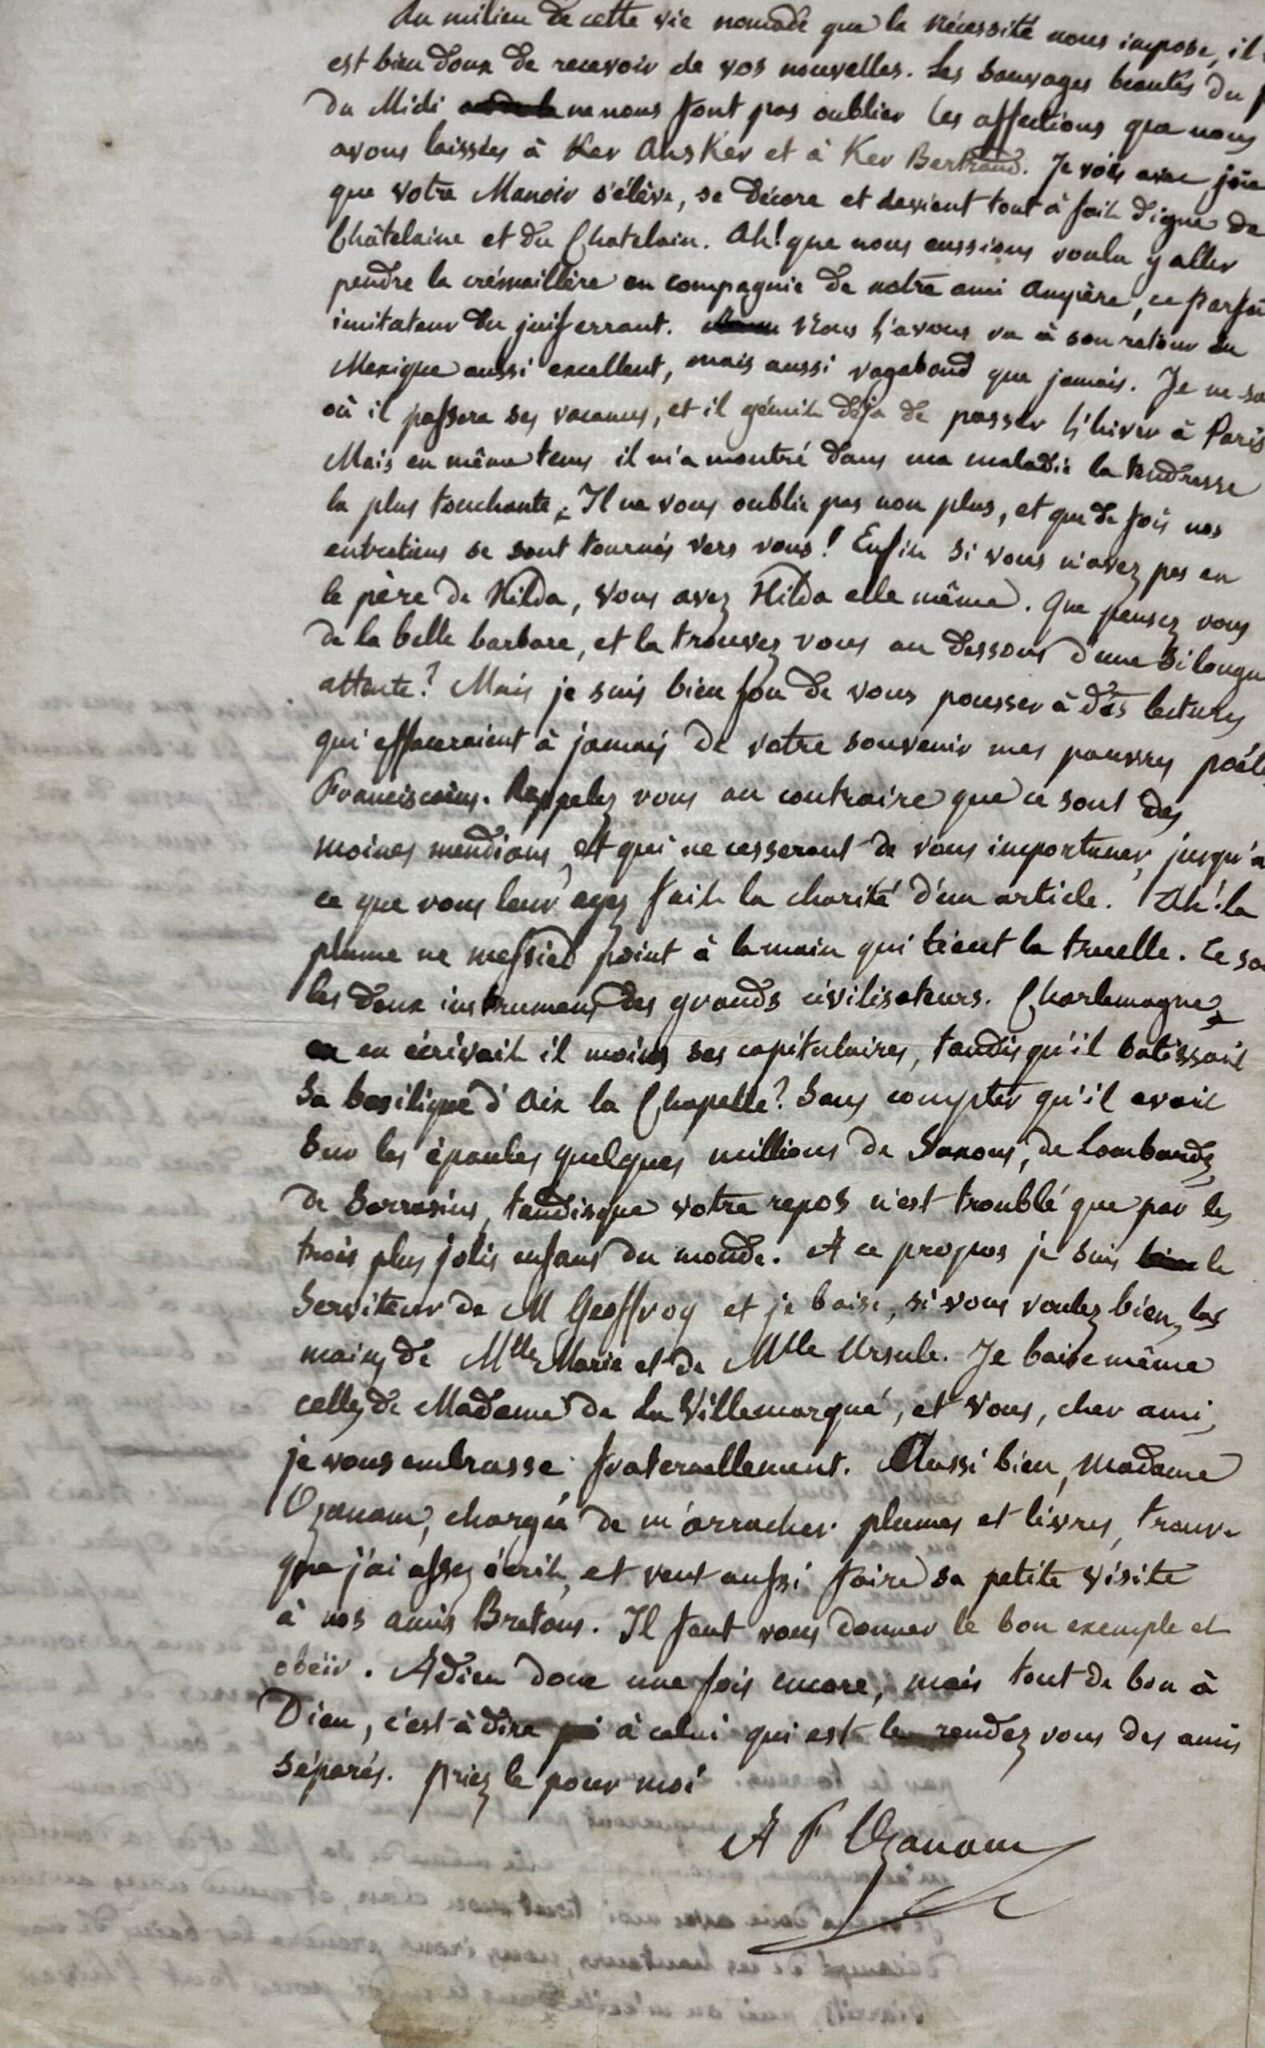 Au milieu de cette vie nomade que la nécessité nous impose, il
est bien doux de recevoir de vos nouvelles. Les sauvages beautés du
du Midi ne nous font pas oublier les affections que nous
avons laissées à Ker Ansker et à Ker Bertrand. Je vois avec joie
que votre Manoir s'élève, se décore et devient tout à fait digne de
Châtelaine et du Chatelain. Ah! que nous eussions voulu y aller
pendre la crémaillère en compagnie de notre ami Ampère, ce parfai
imitateur du juif errant. Nous l'avons vu à son retour du
Mexique aussi excellent, mais aussi vagabond que jamais. Je ne sa
où il passera ses vacances, et il gémit déja de passer l'hiver à Paris
Mais en même tems il m'a montré dans ma maladie la tendresse
la plus touchante. Il ne vous oublie pas non plus, et que de fois nos
entretiens se sont tournés vers vous! Enfin si vous n'avez pas eu
le père de Hilda, vous avez Hilda elle même. Que pensez vous
de la belle barbare, et la trouvez vous au dessous d'une si longue
attente? Mais je suis bien fou de vous pousser à des lectures
qui effaceraient à jamais de votre souvenir mes pauvres poète
Franciscains. Rappelez vous au contraire que ce sont des
moines mendians, et qui ne cesseront de vous importuner, jusqu'a
ce que vous leur ayez fait la charité d'un article. Ah! la
plume ne messied point à la main qui tient la truelle. Ce so
les deux instrumens des grands civilisateurs. Charlemagne
en écrivait il moins ses capitulaires, tandis qu'il batissait
sa basilique d'Aix la Chapelle? Sans compter qu'il avait
sur les épaules quelques millions de Saxons, de Lombards,
de Sarrasins, tandisque votre repos n'est troublé que par les
trois plus jolis enfans du monde. A ce propos je suis le
Serviteur de M Geoffroy et je baise, si vous voulez bien, les
mains de Mlle Marie et de Mlle Ursule. Je baise même
celles de Madame de La Villemarqué, et vous, cher ami,
je vous embrasse fraternellement. Aussi bien, Madame
Ozanam, chargée de m'arracher plumes et livres, trouve
que j'ai assez écrit, et veut aussi faire sa petite visite
à nos amis Bretons. Il faut vous donner le bon exemple et
obéir. Adieu donc une fois encore, mais tout de bon à
Dieu, c'est à dire à celui qui est le rendez vous des amis
séparés. priez le pour moi
A F Ozanam